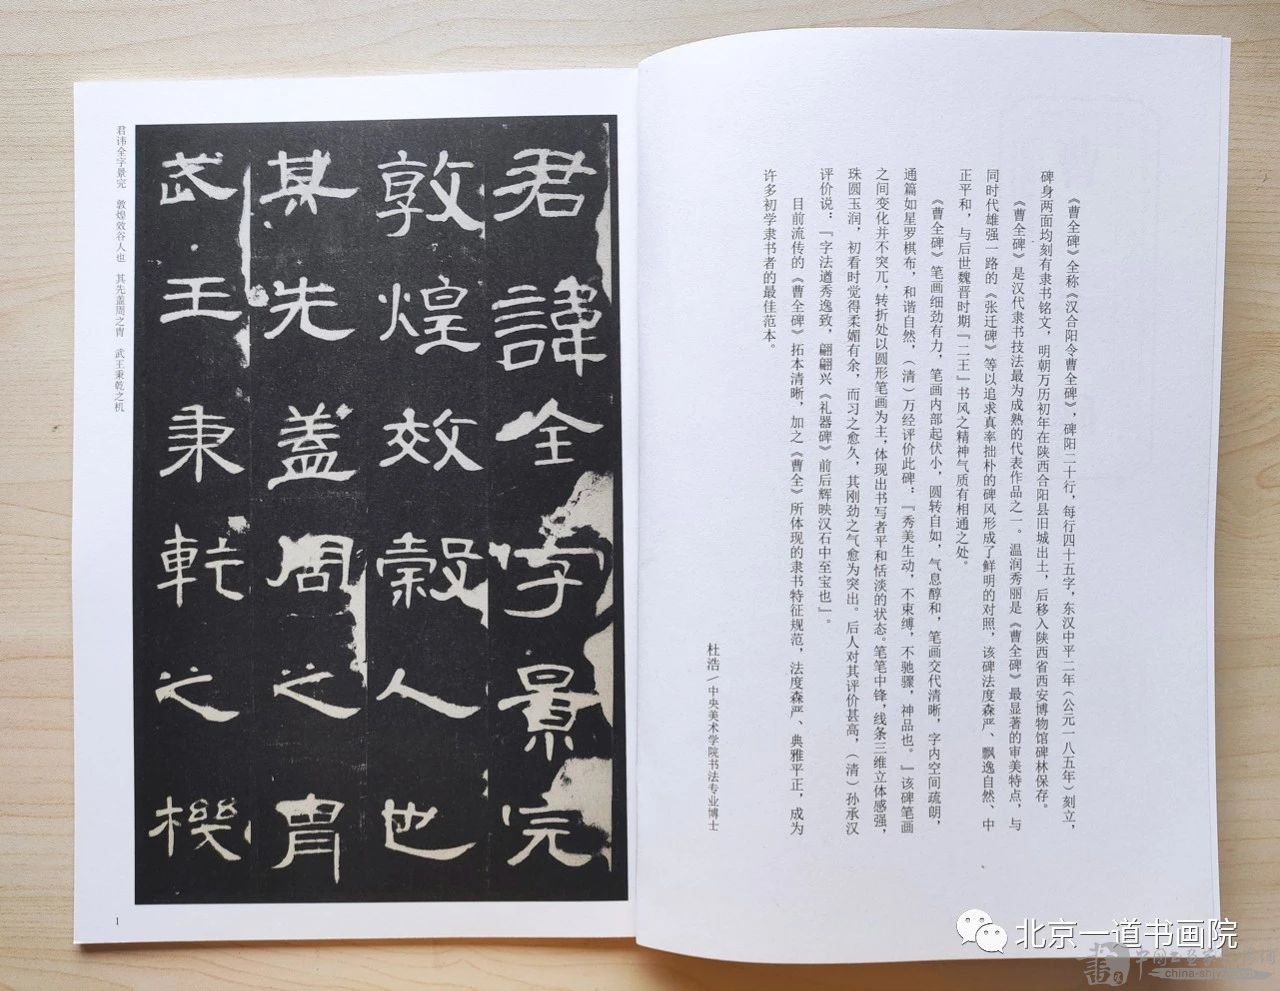 《曹全碑》全称《汉合阳令曹全碑》，碑阳二十行，每行四十五字，东汉中平二年（公元一八五年）刻立，
碑身两面均刻有隶书铭文，明朝万历初年在陕西合阳县旧城出土，后移入陕西省西安博物馆碑林保存。
《曹全碑》是汉代隶书技法最为成熟的代表作品之一。温润秀丽是《曹全碑》最显著的审美特点，与
同时代雄强一路的《张迁碑》等以追求真率拙朴的碑风形成了鲜明的对照，该碑法度森严、飘逸自然、中
正平和，与后世魏晋时期『二王』书风之精神气质有相通之处。
《曹全碑》笔画细劲有力，笔画内部起伏小，圆转自如，气息醇和，笔画交代清晰，字内空间疏朗，
通篇如星罗棋布，和谐自然，（清）万经评价此碑：『秀美生动，不束缚，不驰骤，神品也。』该碑笔画
之间变化并不突兀，转折处以圆形笔画为主，体现出书写者平和恬淡的状态。笔笔中锋，线条三维立体感强，
珠圆玉润，初看时觉得柔媚有余，而习之愈久，其刚劲之气愈为突出。后人对其评价甚高，（清）孙承汉
评价说：『字法遒秀逸致，翩翩兴《礼器碑》前后辉映汉石中至宝也』。
目前流传的《曹全碑》拓本清晰，加之《曹全》所体现的隶书特征规范，法度森严、典雅平正，成为
许多初学隶书者的最佳范本。
杜浩/中央美术学院书法专业博士
君諱全字景完
敦煌效穀人也
其先蓋周之胄
武王秉乾之機
君讳全字景完 敦煌效谷人也 其先盖周之胄 武王秉乾之机
1
北京一道书画院
china-shjy